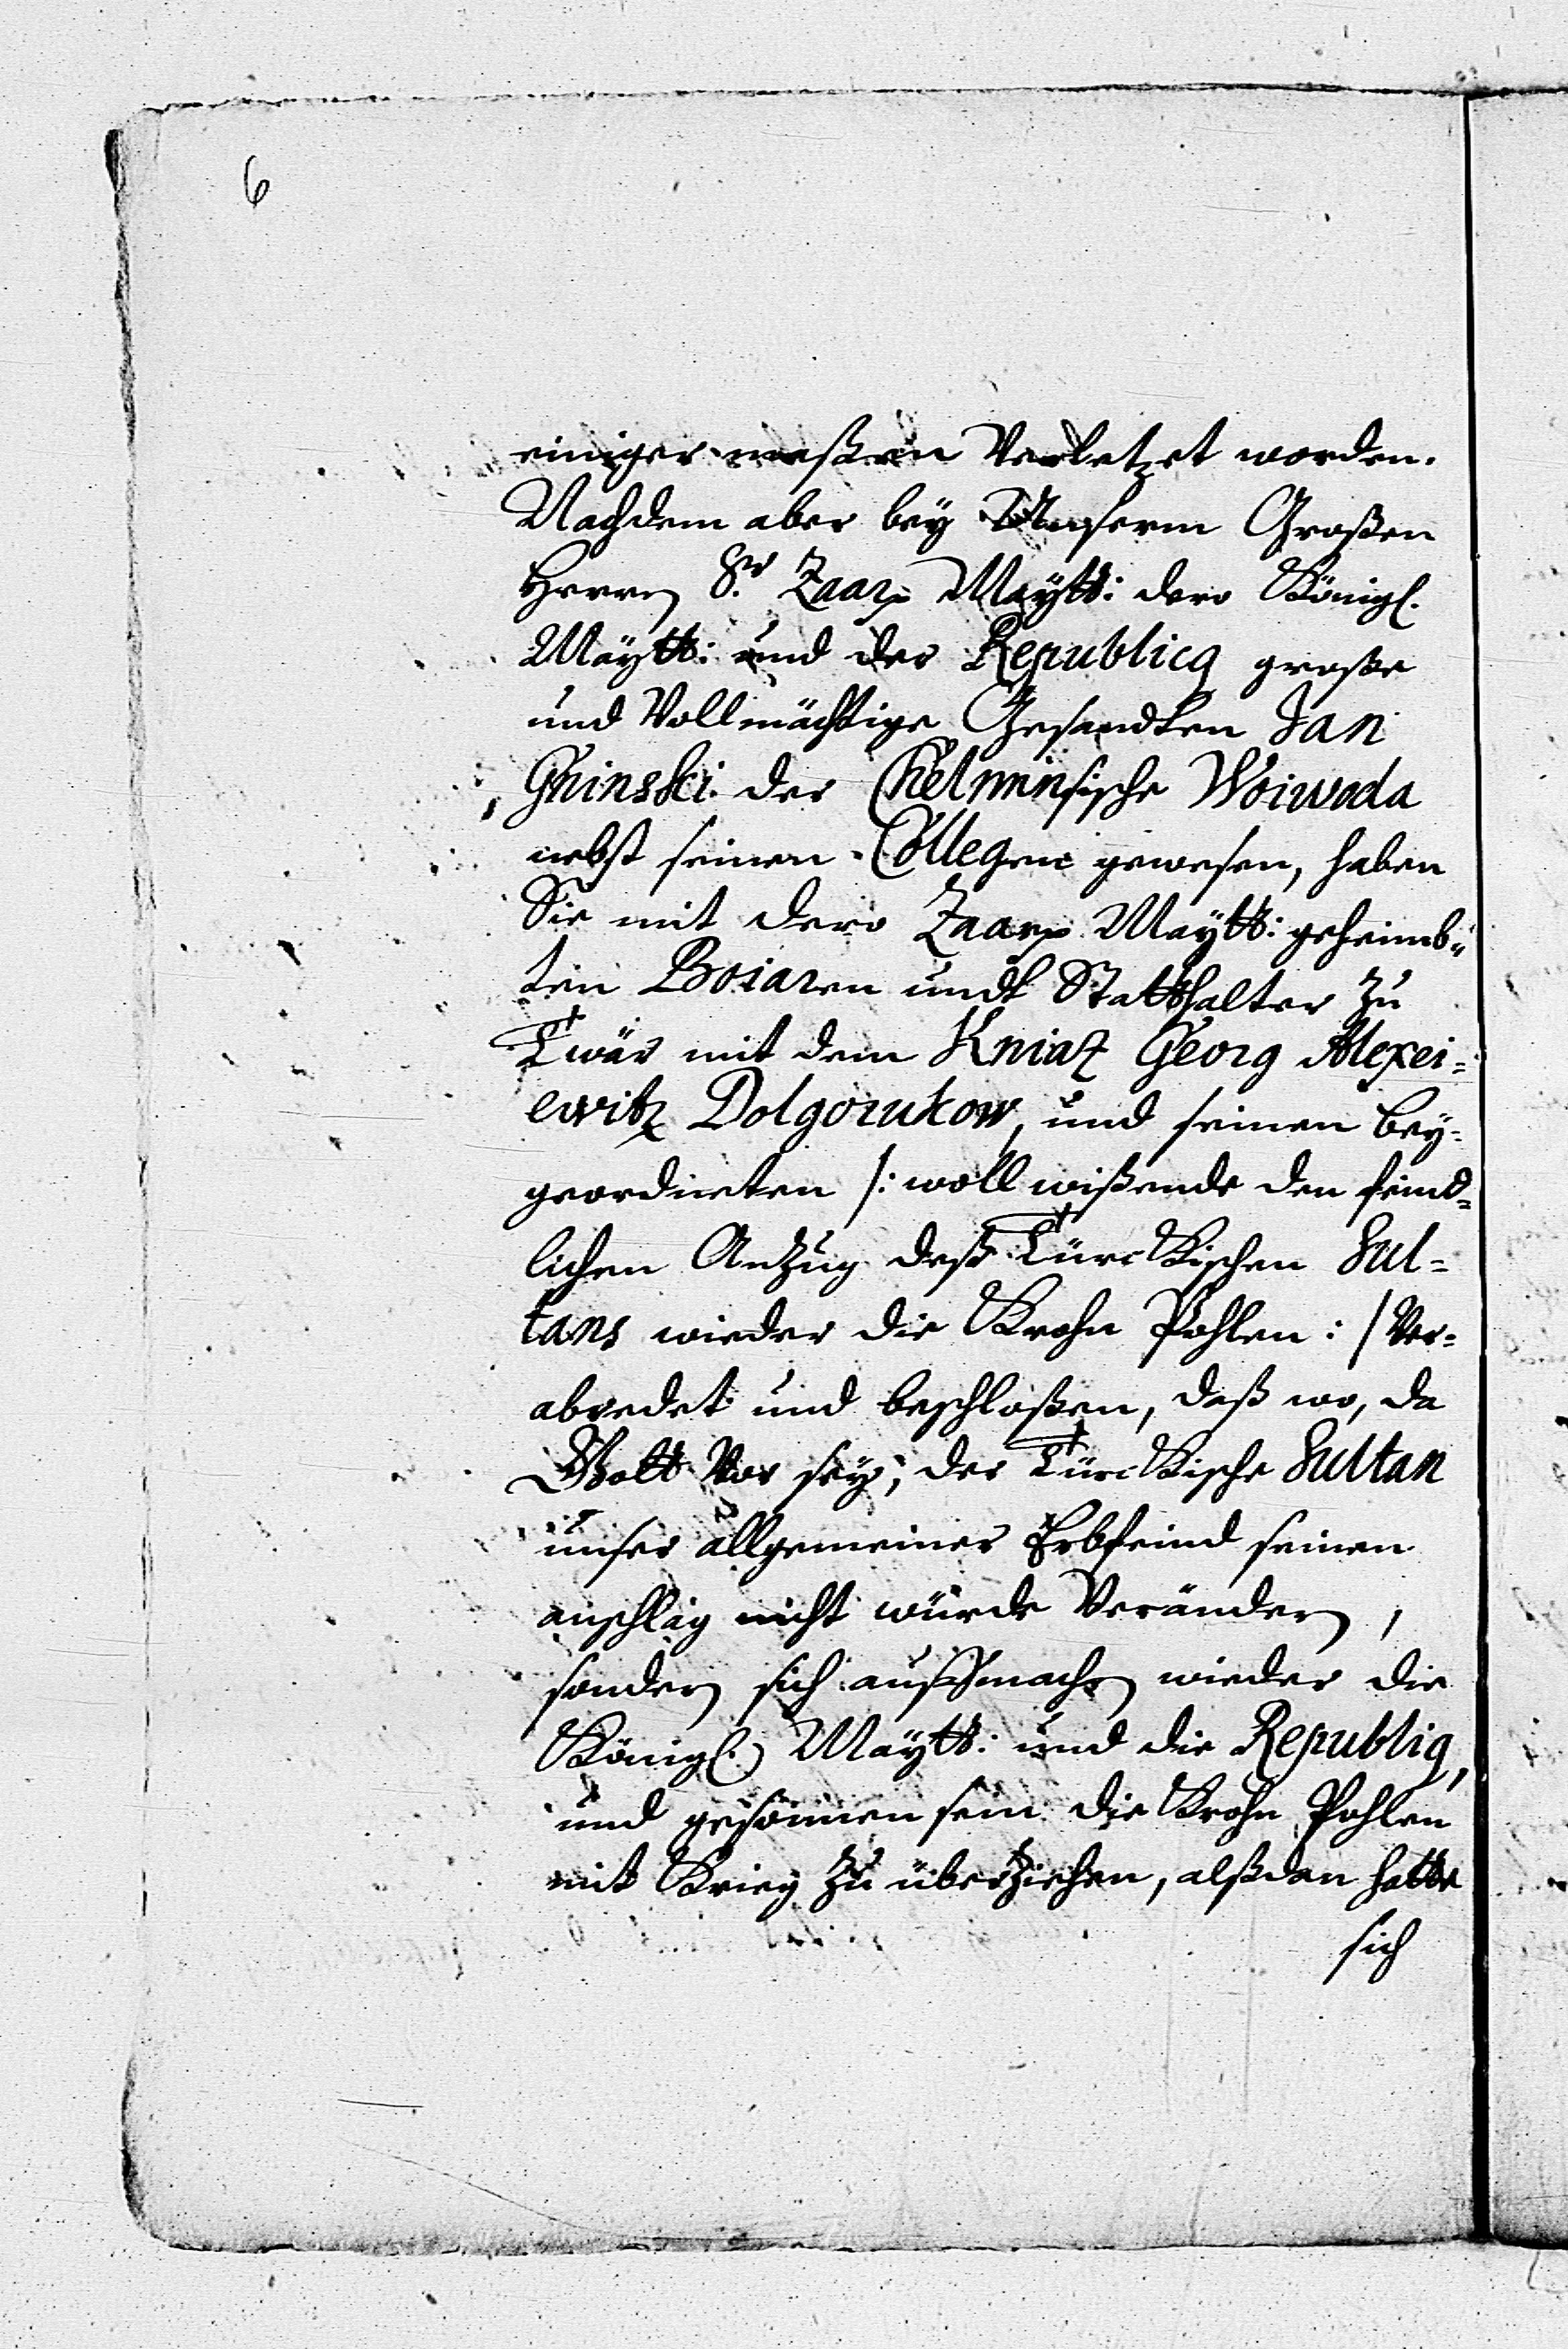 6
einiger maßen Verletzet worden.
Nachdem aber bey Unserm Großen
Herrn Sr. Zaar. Maytt: dero Königl.
Maytt: und der Republicq große
und Vollmächtige Gesandten Jan
Gninski der Chelminsische Woiwoda
nebst seinen Collegen gewesen, haben
Sie mit dero Zaar. Maytt: geheimb„
ten Boiaren undt Statthalter zu
Twär mit dem Kniaz Georg Alexei=
ewitz Dolgorukow, und seinen bey=
geordneten /: woll wißende den feind=
lichen Anzug deß Türckischen Sul=
tans wieder die Krohn Pohlen :/ Ver=
abredet und beschloßen, daß wo, da
Gott Vor sey, der Türckische Sultan
unser allgemeiner Erbfeind seinen
anschlag nicht würde Verändern,
sondern sich auffmachen wieder die
Königl. Maytt: und die Republiq,
und gesonnen sein die Krohn Pohlen
mit Krieg zu überziehen, alßdan hatte
sich